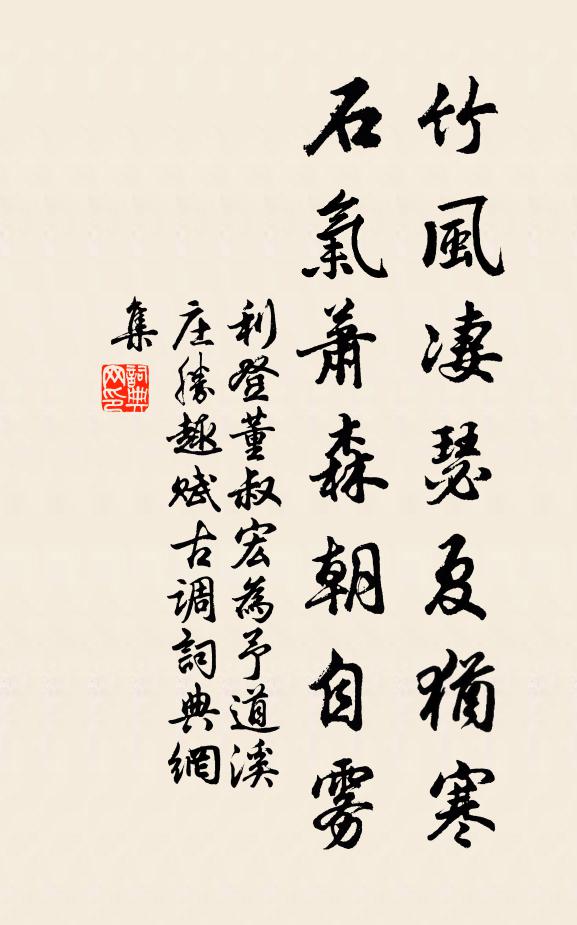 竹風凄瑟夏猶寒
石氣蕭森朝自雾
利登董叔宏為予道溪
庄勝趣赋古调詞典網
集
詞典
网印